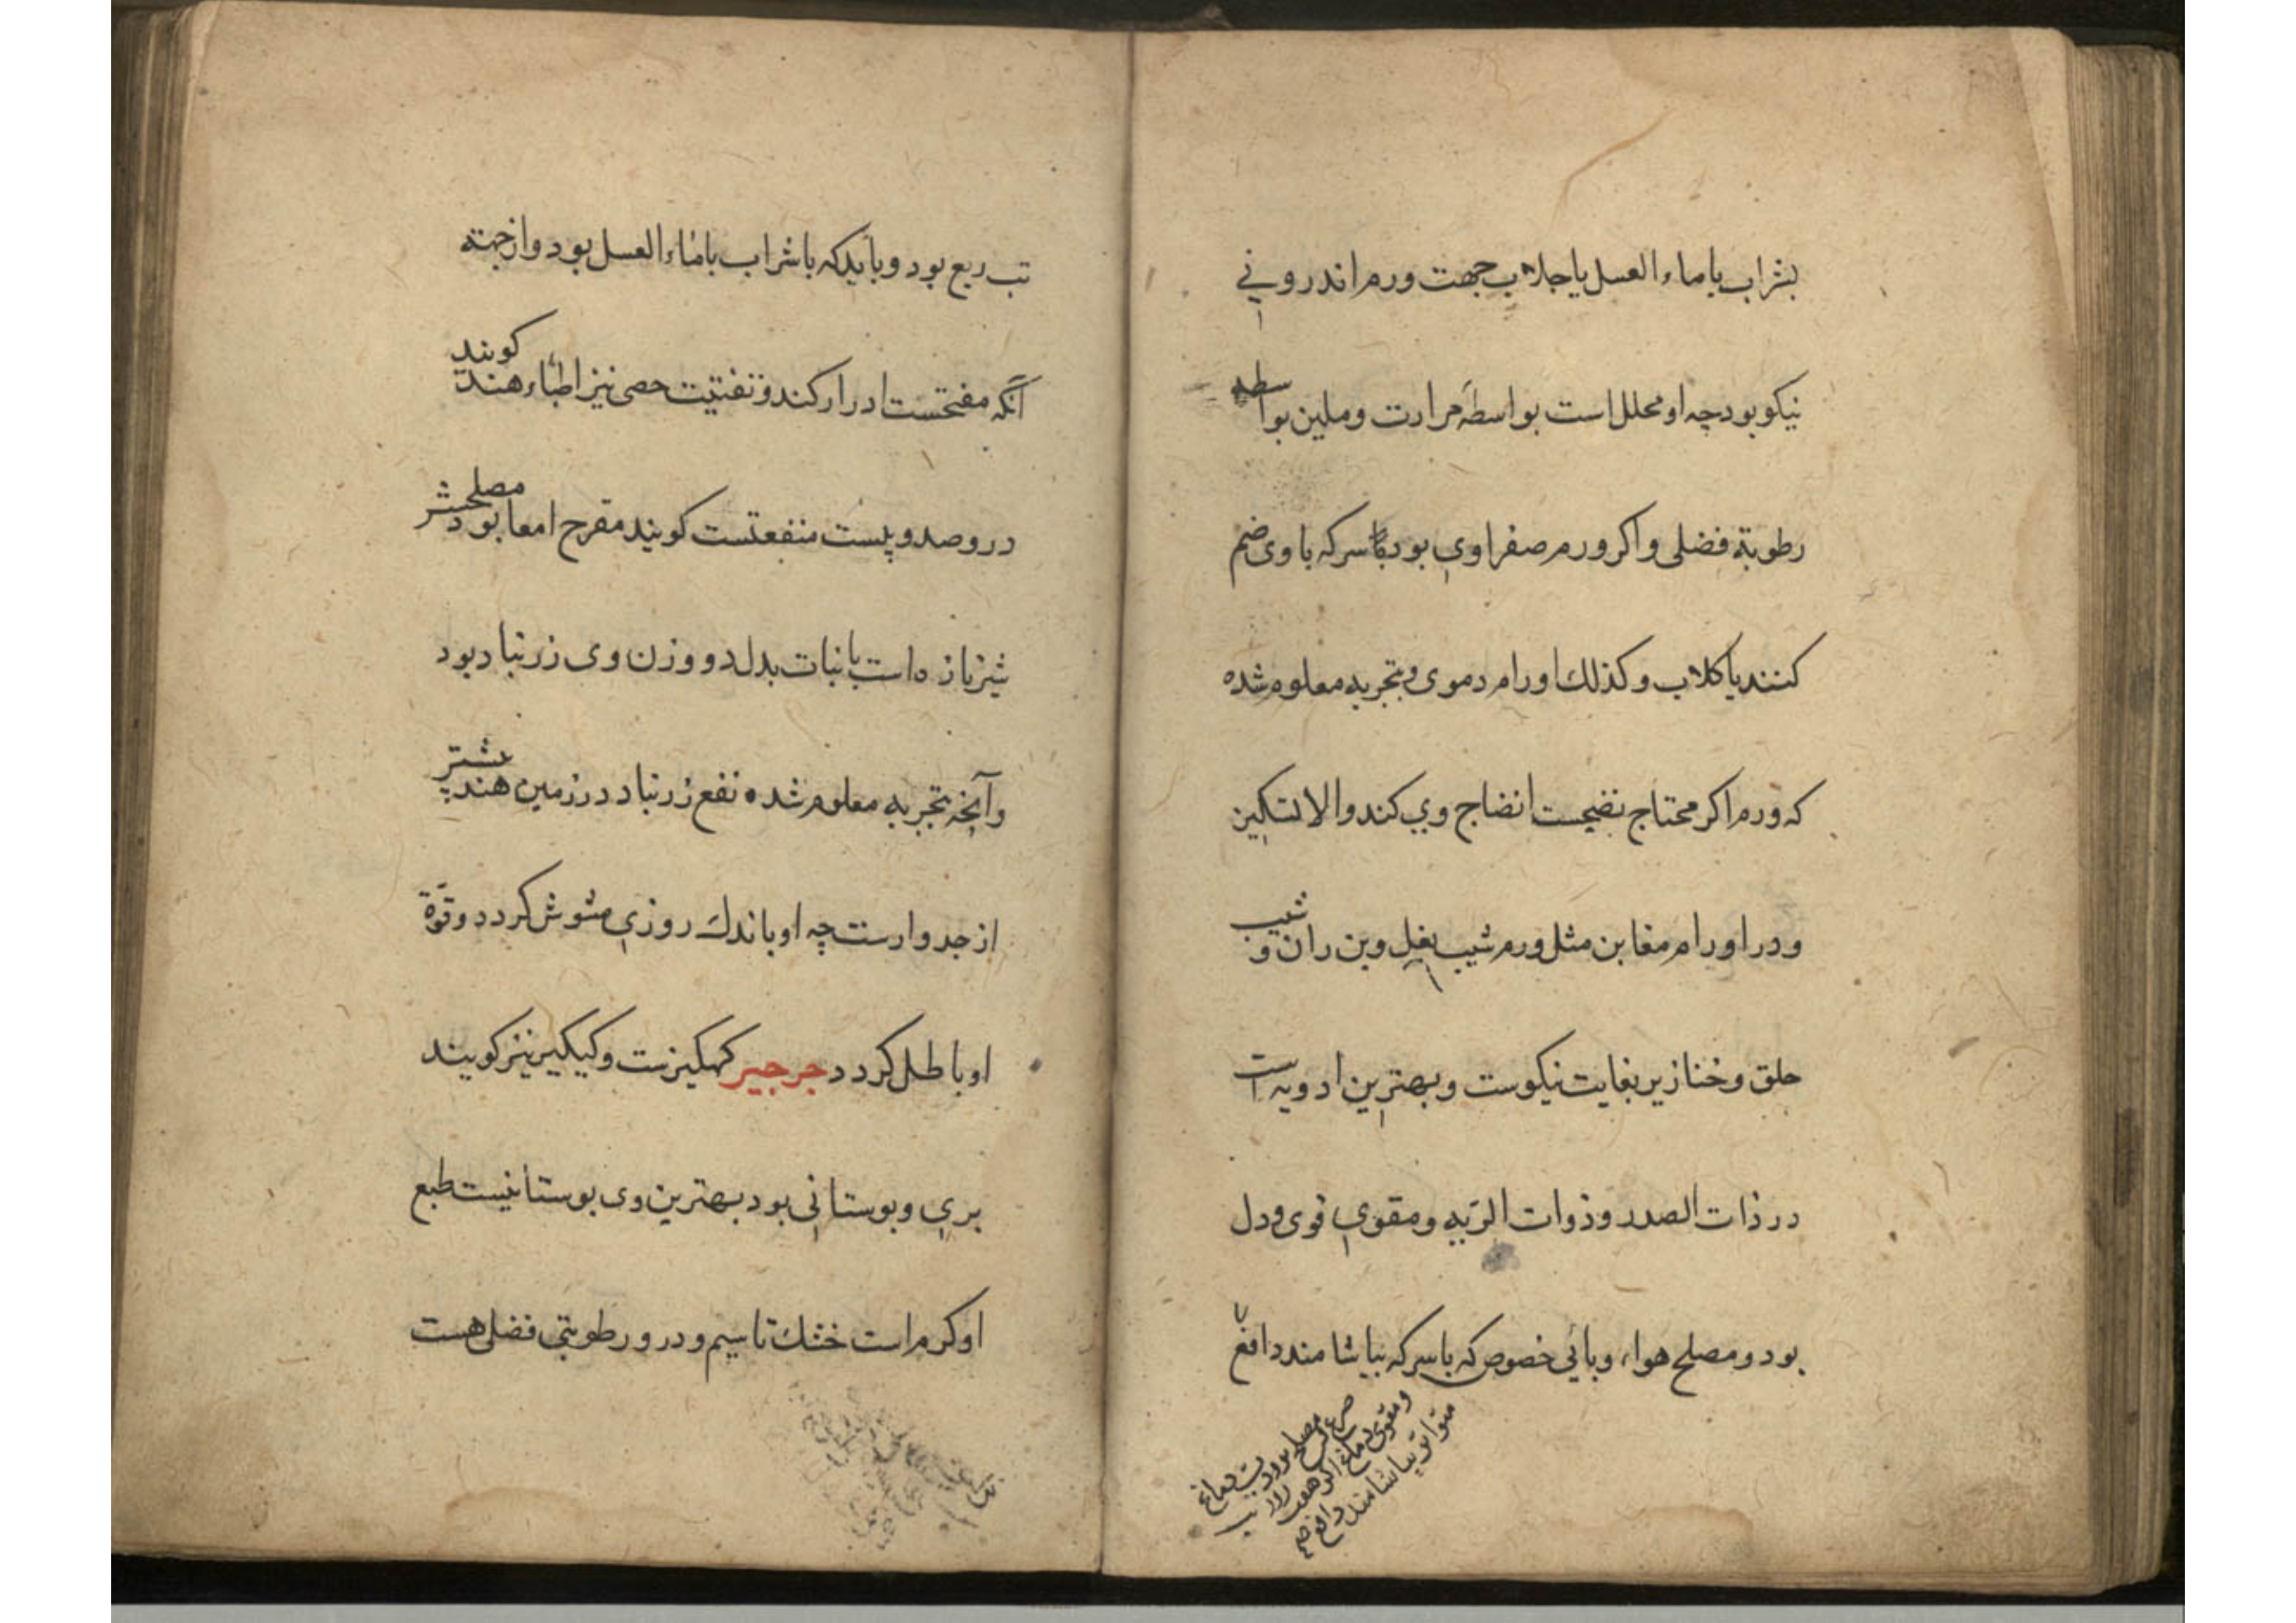 بشراب یا ماء العسل یا جلاب جهت ورم اندرونی
نیکو بود چه او محلل است بواسطهٔ مرارت و ملین بواسطه
رطوبة فضلی و اکر ورم صفراوی بود با سرکه با وی ضم
کنند یا کلاب و کذلك اورام دموی و بتجربه معلوم شده
که ورم اکر محتاج نضجست انضاج وی کند والا تسکین
و در اورام مغابن مثل ورم شیب بغل و بن ران و شیب
حلق و خنازیر بغایت نیکوست و بهترین ادویه است
در ذات الصدر و ذوات الریه و مقوی قوی و دل
بود و مصلح هواء وبایی خصوص که با سرکه بیاشامند دافع
صرع
و مقوی دماغ اکر هفت روز
متواتر بیاشامند دافع
تب ربع بود و باید که با شراب یا ماء العسل بود و از جهته
آنکه مفتحست ادرار کند و تفتیت حصی نیز اطباء هند کویند
درو صد و بیست منفعتست کویند مقرح امعا بود مصلحش
شیر تازه است یا نبات بدل دو وزن وی زرنباد بود
و آنچه بتجربه معلوم شده نفع زرنباد در زمین هند بیشتر
از جدوارست چه او باندك روزی مشوش کردد و قوّة
او باطل کردد جرجیر کهکیزست و کیکیر نیز کویند
بری و بوستانی بود بهترین وی بوستانیست طبع
او کرم است خشك تا سیم و درو رطوبتی فضلی هست